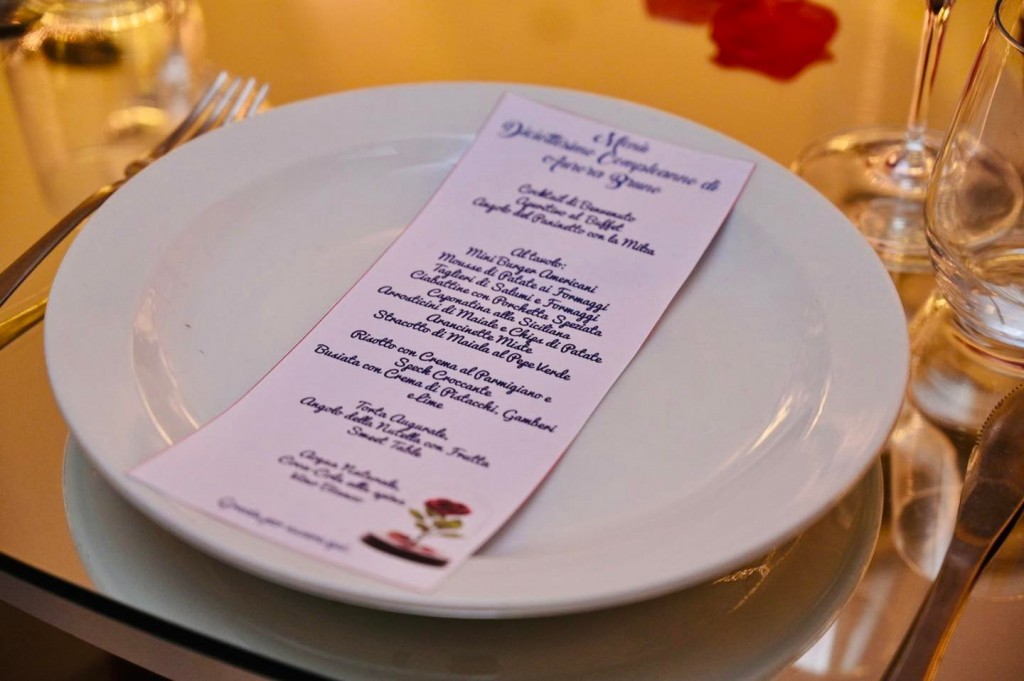 Menù
Diciottesimo Compleanno di
Aurora Bruno
Cocktail di Benvenuto
Aperitivo al Buffet
Angolo del Paninetto con la Milza
Al tavolo:
Mini Burger Americani
Mousse di Patate ai Formaggi
Taglieri di Salumi e Formaggi
Ciabattine con Porchetta Speziata
Caponatina alla Siciliana
Arrosticini di Maiale e Chips di Patate
Arancinette Miste
Stracotto di Maiala al Pepe Verde
Risotto con Crema al Parmigiano e
Speck Croccante
Busiata con Crema di Pistacchi, Gamberi
e Lime
Torta Augurale,
Angolo della Nutella con Frutta
Sweet Table
Acqua Naturale,
Coca-Cola alla spina
Vino Bianco
Grazie per